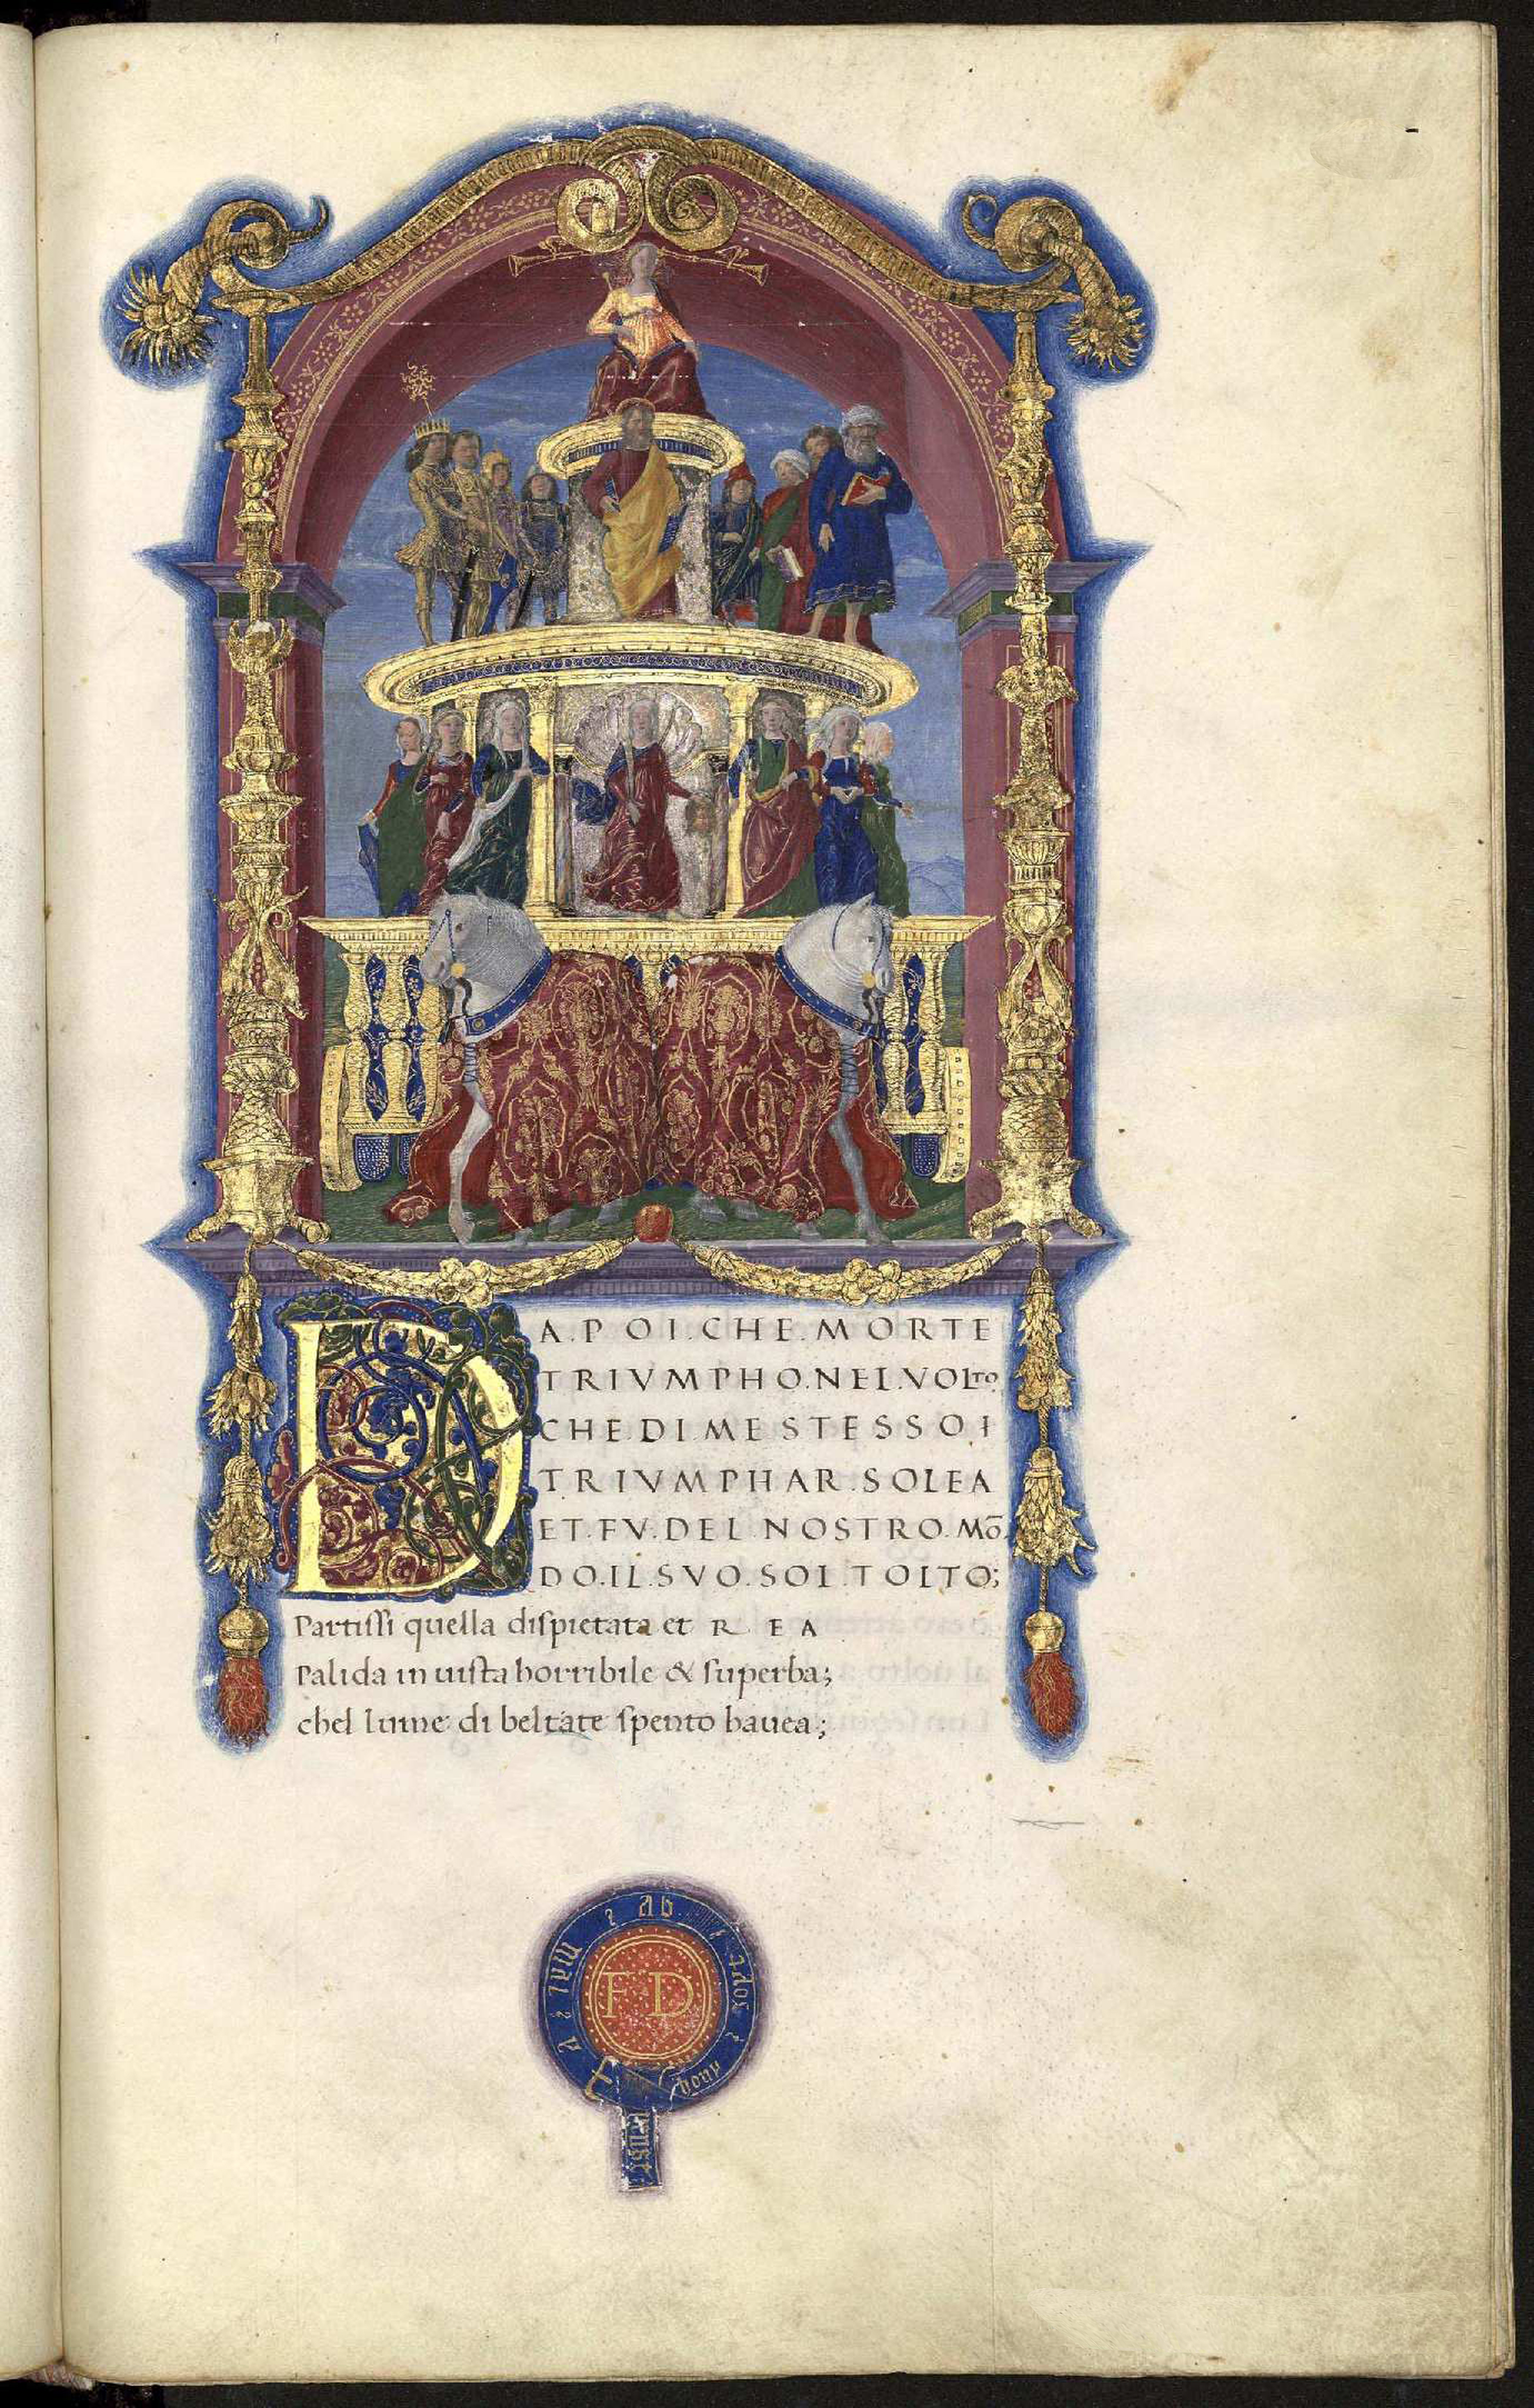 DA.POI.CHE.MORTE
TRIVMPHO.NEL.VOLTO
CHE.DI.ME STESSO I
TRIVMPHAR.SOLEA
ET.FV.DEL NOSTRO.MŌ
DO.IL.SVO.SOL.TOLTO;
Partissi quella dispietata et R E A
Palida in uista horribile & superba;
chel lume di beltate spento hauea;
FD
ab
soyt
mal
y